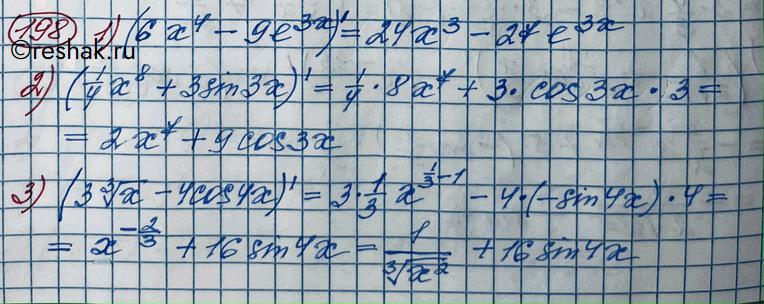 198 1) (6x⁴ - 9e^{3x})' = 24x³ - 27e^{3x}
©reshak.ru
2) (1/4 x⁸ + 3sin3x)' = 1/4 · 8x⁷ + 3 · cos3x · 3 =
= 2x⁷ + 9cos3x
3) (3∛x - 4cos4x)' = 3 · 1/3 x^{1/3 - 1} - 4 · (-sin4x) · 4 =
= x^{-2/3} + 16sin4x = 1/∛x² + 16sin4x